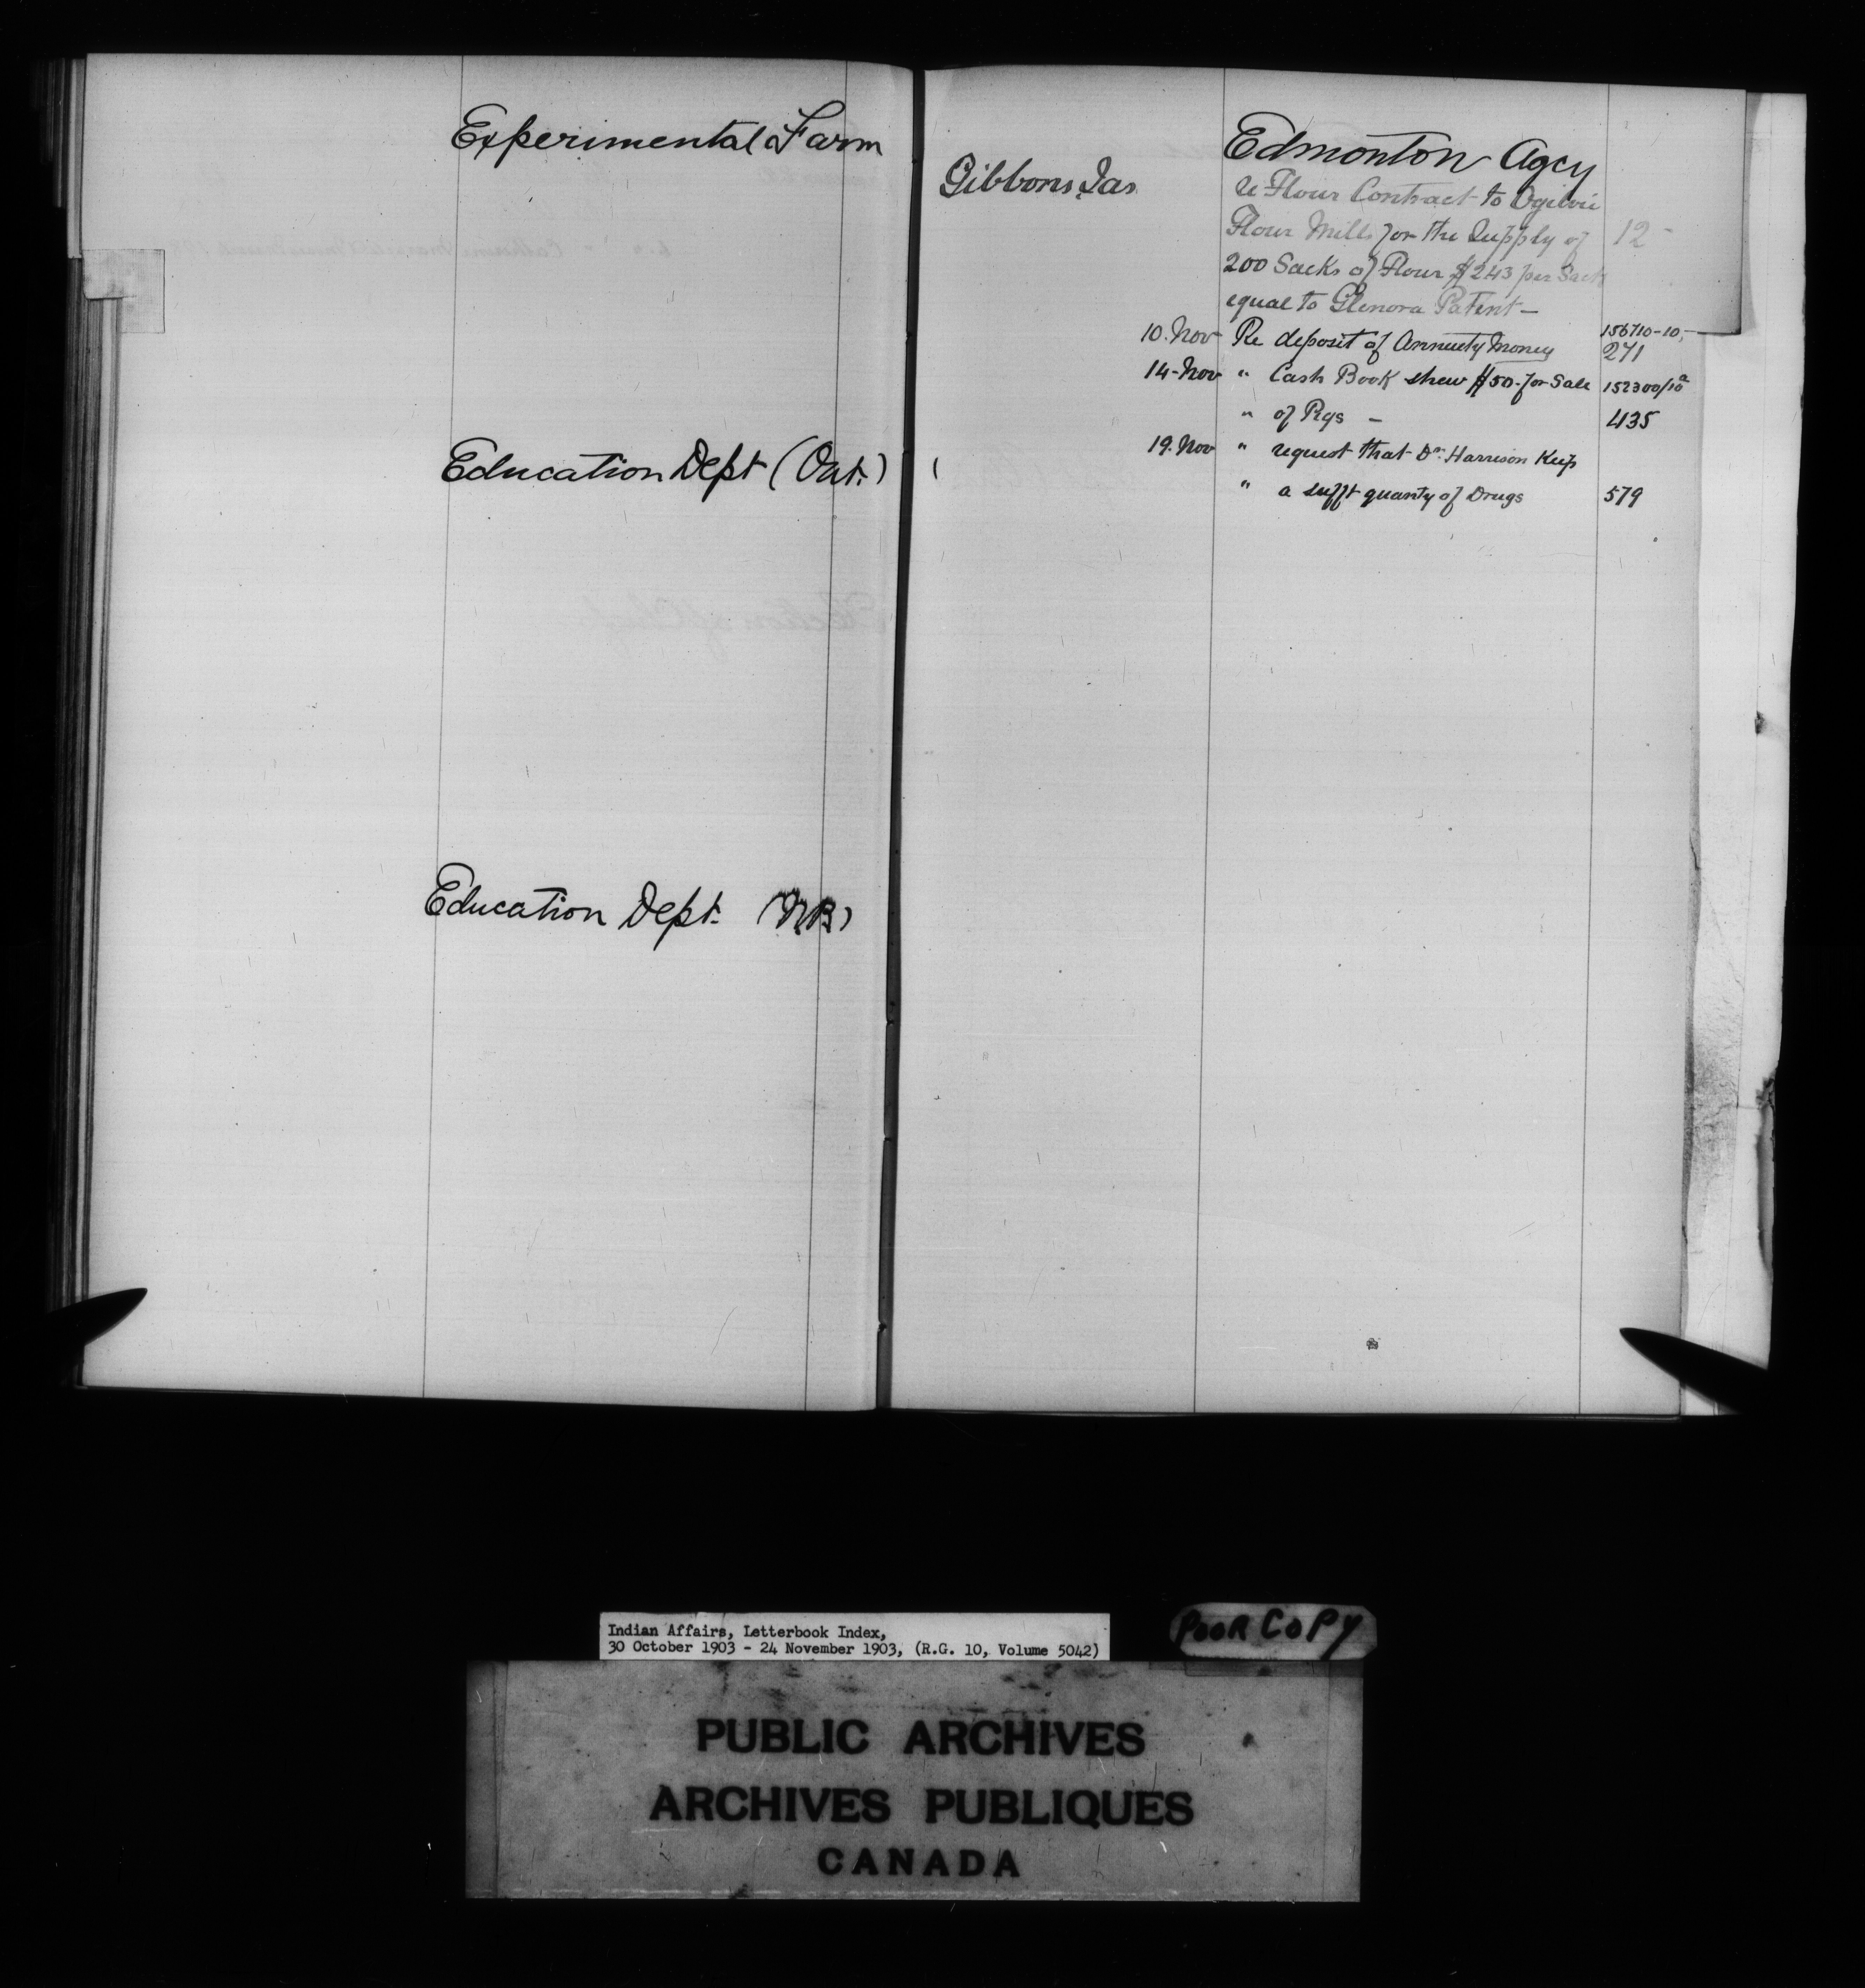 Experimental Farm
Education Dept (Ont.)
Education Dept. (N.B.)
Edmonton Agcy
Gibbons, Jas
re Flour Contract to Ogilvie
Flour Mills for the Supply of 12-
200 Sacks of Flour $243 per Sack
equal to Glenora Patent-
10. Nov Re deposit of Annuety Money 156710-10,
271
14-Nov " Cash Book shew $50- for Sale 152300/10a
" of Rgs - 435
19. Nov " request that Dr. Harrison Keep
" a sufft quanty of Drugs 579
Indian Affairs, Letterbook Index,
30 October 1903 - 24 November 1903, (R.G. 10, Volume 5042)
POOR COPY
PUBLIC ARCHIVES
ARCHIVES PUBLIQUES
CANADA